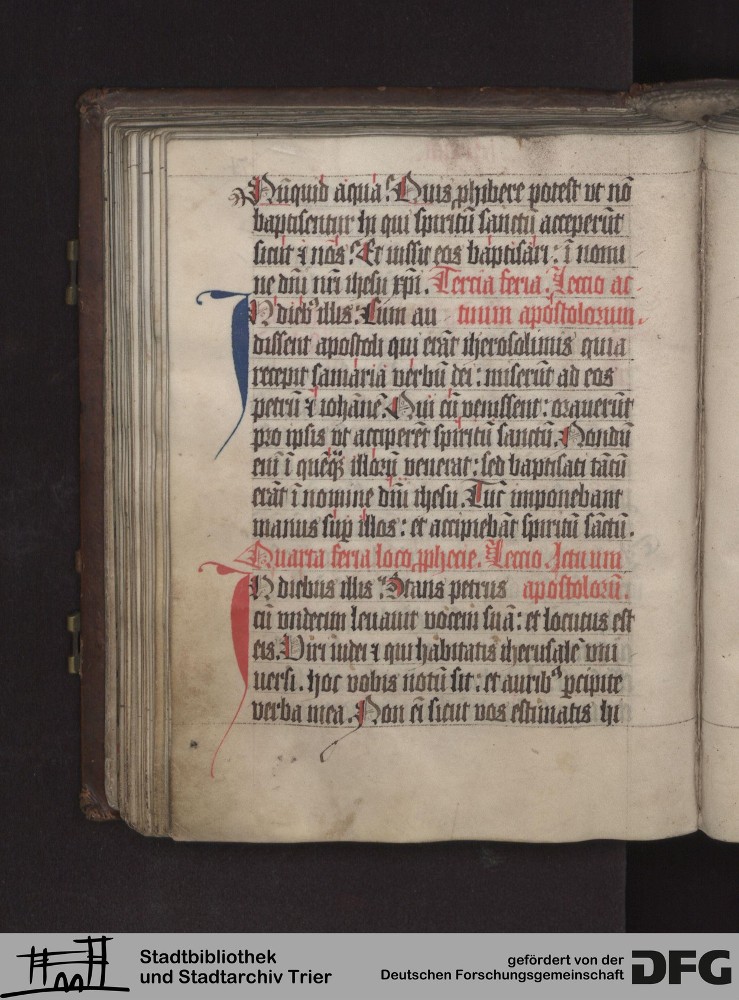 Nūquid aquā? Quis ꝓhibere potest vt nō
baptisentur hi qui spiritū sanctū acceperūt
sicut ⁊ nos? Et iussit eos baptisari: ī nomi
ne dn̄i nr̄i ihesu xp̄i. Tercia feria. Leccio ac
IN diebꝰ illis: Cum au tuum apostolorum.
dissent apostoli qui erāt iherosolimis quia
recepit samaria verbū dei: miserūt ad eos
petrū ⁊ iohānē. Qui cū venissent: orauerūt
pro ipsis vt acciperēt spiritū sanctū. Nondū
eni ī quēq̄ illorū venerat: sed baptisati tātū
erāt ī nomine dn̄i ihesu. Tūc imponebant
manus suꝑ illos: et accipiebāt spiritū sāctū.
Quarta feria loco ꝓphecie. Leccio. Actuum
IN diebus illis: Stans petrus apostolorū.
cū vndecim leuauit vocem suā: et locutus est
eis. Viri iudei ⁊ qui habitatis iherusalē vni
uersi. hoc vobis notū sit: et auribꝰ ꝑcipite
verba mea. Non ei sicut vos estimatis hi
Stadtbibliothek
und Stadtarchiv Trier
gefördert von der
Deutschen Forschungsgemeinschaft
DFG